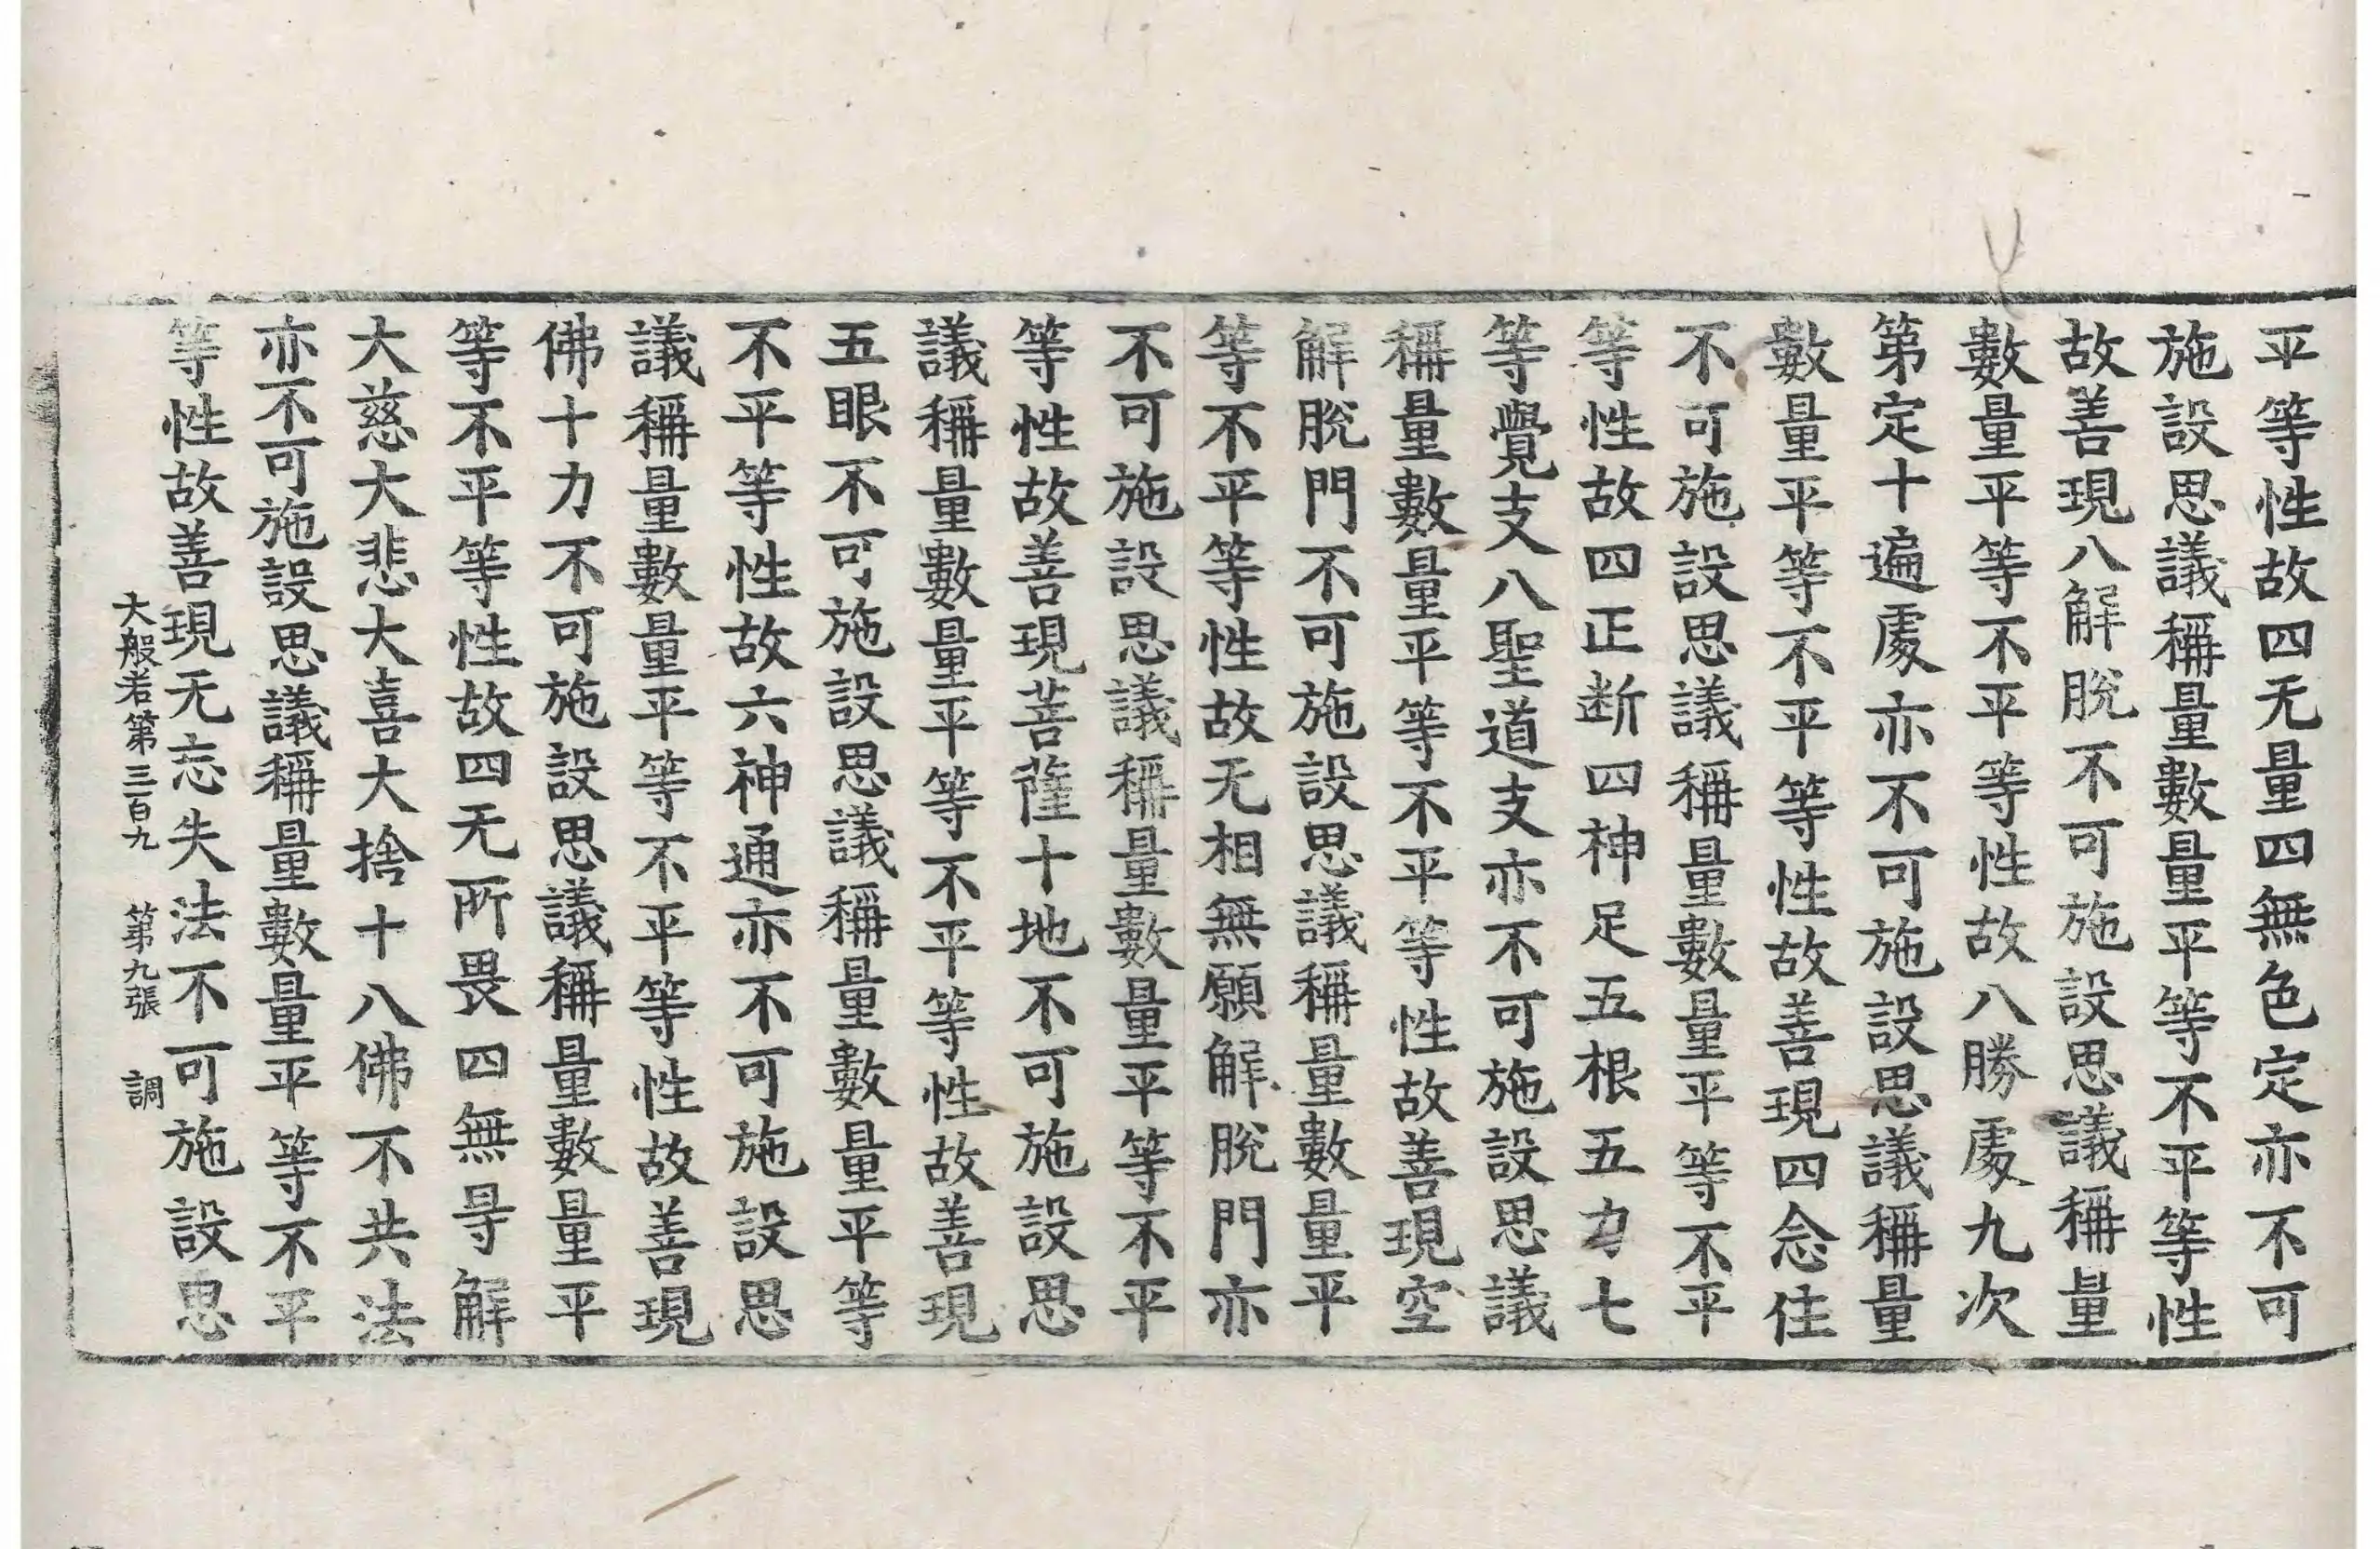 平等性故四无量四無色定亦不可
施設思議稱量數量平等不平等性
故善現八解脫不可施設思議稱量
數量平等不平等性故八勝處九次
第定十遍處亦不可施設思議稱量
數量平等不平等性故善現四念住
不可施設思議稱量數量平等不平
等性故四正断四神足五根五力七
等覺支八聖道支亦不可施設思議
稱量數量平等不平等性故善現空
解脫門不可施設思議稱量數量平
等不平等性故无相無願解脫門亦
不可施設思議稱量數量平等不平
等性故善現菩薩十地不可施設思
議稱量數量平等不平等性故善現
五眼不可施設思議稱量數量平等
不平等性故六神通亦不可施設思
議稱量數量平等不平等性故善現
佛十力不可施設思議稱量數量平
等不平等性故四无所畏四無㝵解
大慈大悲大喜大捨十八佛不共法
亦不可施設思議稱量數量平等不平
等性故善現无忘失法不可施設思
大般若第三百九 第九張 調